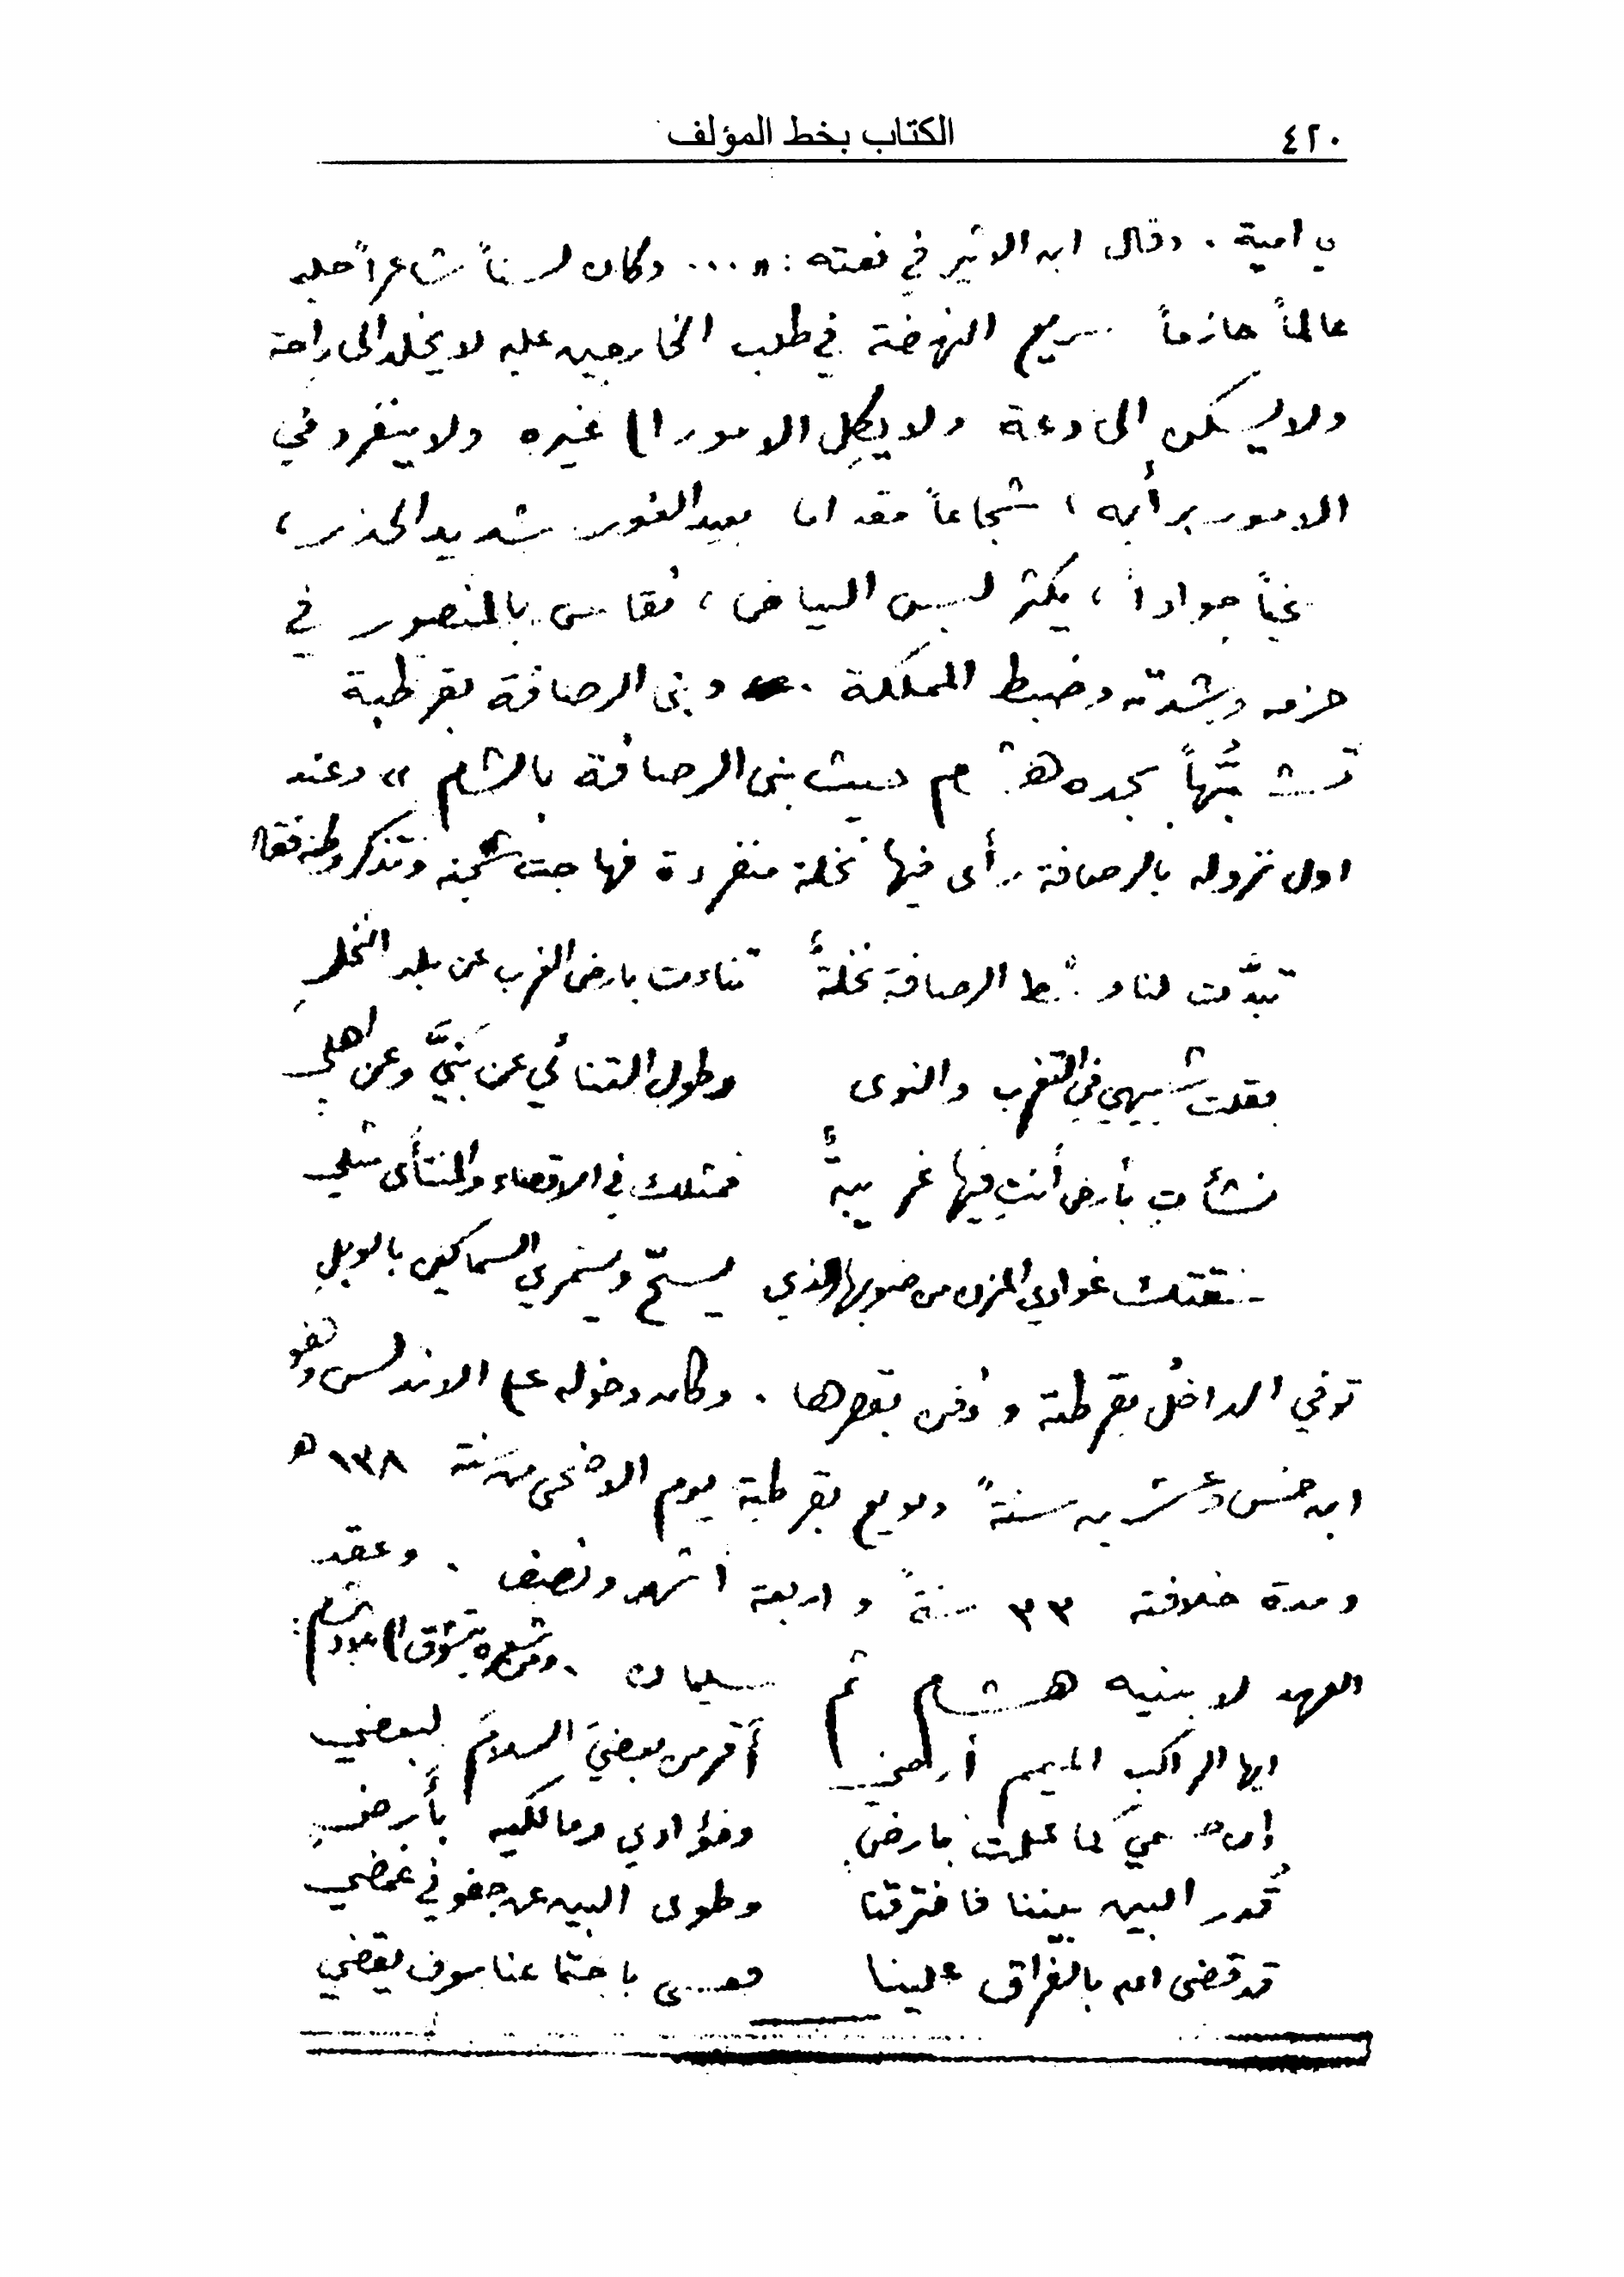 ٤٢٠ الكتاب بخط المؤلف
ي امية . وقال ابن الاثير في نعته : « ... وكان لسناً شاعراً حليماً
عالماً حازماً سريع النهضة في طلب الخارجين عليه لا يخلد الى راحة
ولا يسكن الى دعة ولا يكِل الامور الى غيره ولا ينفرد في
الامور برأيه ، شجاعاً مقداما بعيد الغور شديد الحذر ،
سخياً جواداً ، يكثر لبس البياض ، يُقاس بالمنصور في
حزمه وشدته وضبط المملكة . وبنى الرصافة بقرطبة
تشبُّهاً بجده هشام حيث بنى الرصافة بالشام » وعند
اول نزوله بالرصافة رأى فيها نخلة منفردة فهاجت شجنه وتذكر وطنه فقال
تبدَّت لنا وسْط الرصافة نخلةٌ تناءت بارض الغرب عن بلد النخلِ
فقلت شبيهي في التغرب والنوى وطول التنائي عن بَنيَّ وعن اهلي
نشأتِ بأرض أنتِ فيها غريبةٌ فمثلك في الاقصاء والمنتأى مثلي
سقتك غوادي المزن من صوبها الذي يسحّ ويستمري السماكين بالوبلِ
توفي الداخلُ بقرطبة ودُفن بقصرها . وكان دخوله على الاندلس وهو
ابن خمس وعشرين سنةً وبويع بقرطبة يوم الاضحى من سنة ١٣٨ هـ
ومدة خلافته ٣٣ سنةً واربعة اشهر ونصف . وعقد
العهد لابنيه هشام ثم سليمان . ومن شعره يتشوق الى بلاد الشام :
ايها الراكب الميمم أرضي أقرِ من بعضيَ السلامَ لبعضي
إن جسمي كما علمت بارضٍ وفؤادي ومالكيه بأَرضِ
قُدر البين بيننا فافترقنا وطوى البين عن جفوني غمضي
قد قضى الله بالفراق علينا فعسى باجتماعنا سوف يقضي